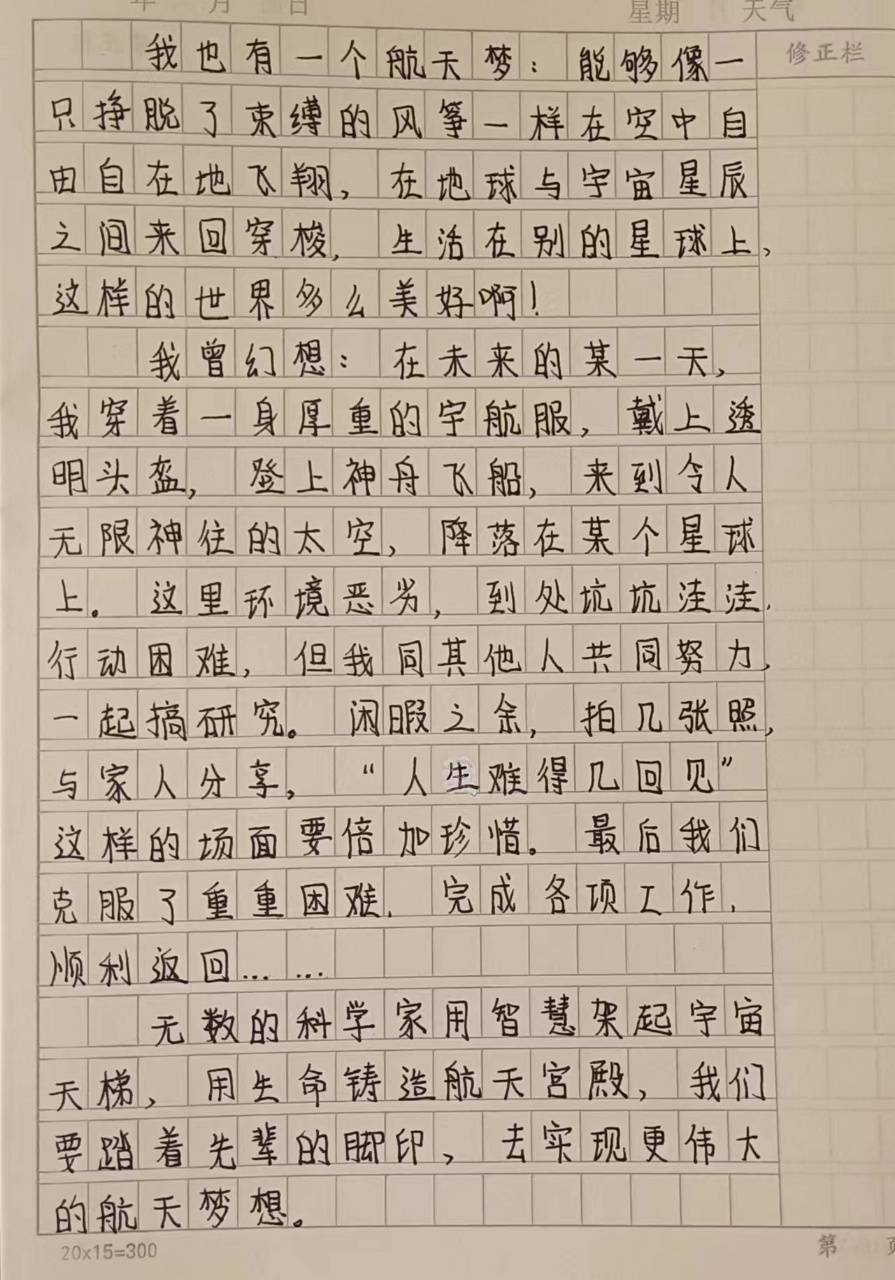 年 月 日 星期 天气
修正栏
我也有一个航天梦：能够像一
只挣脱了束缚的风筝一样在空中自
由自在地飞翔，在地球与宇宙星辰
之间来回穿梭，生活在别的星球上，
这样的世界多么美好啊！
我曾幻想：在未来的某一天，
我穿着一身厚重的宇航服，戴上透
明头盔，登上神舟飞船，来到令人
无限神往的太空，降落在某个星球
上。这里环境恶劣，到处坑坑洼洼，
行动困难，但我同其他人共同努力，
一起搞研究。闲暇之余，拍几张照，
与家人分享，“人生难得几回见”
这样的场面要倍加珍惜。最后我们
克服了重重困难，完成各项工作，
顺利返回……
无数的科学家用智慧架起宇宙
天梯，用生命铸造航天宫殿，我们
要踏着先辈的脚印，去实现更伟大
的航天梦想。
20x15=300
第 页